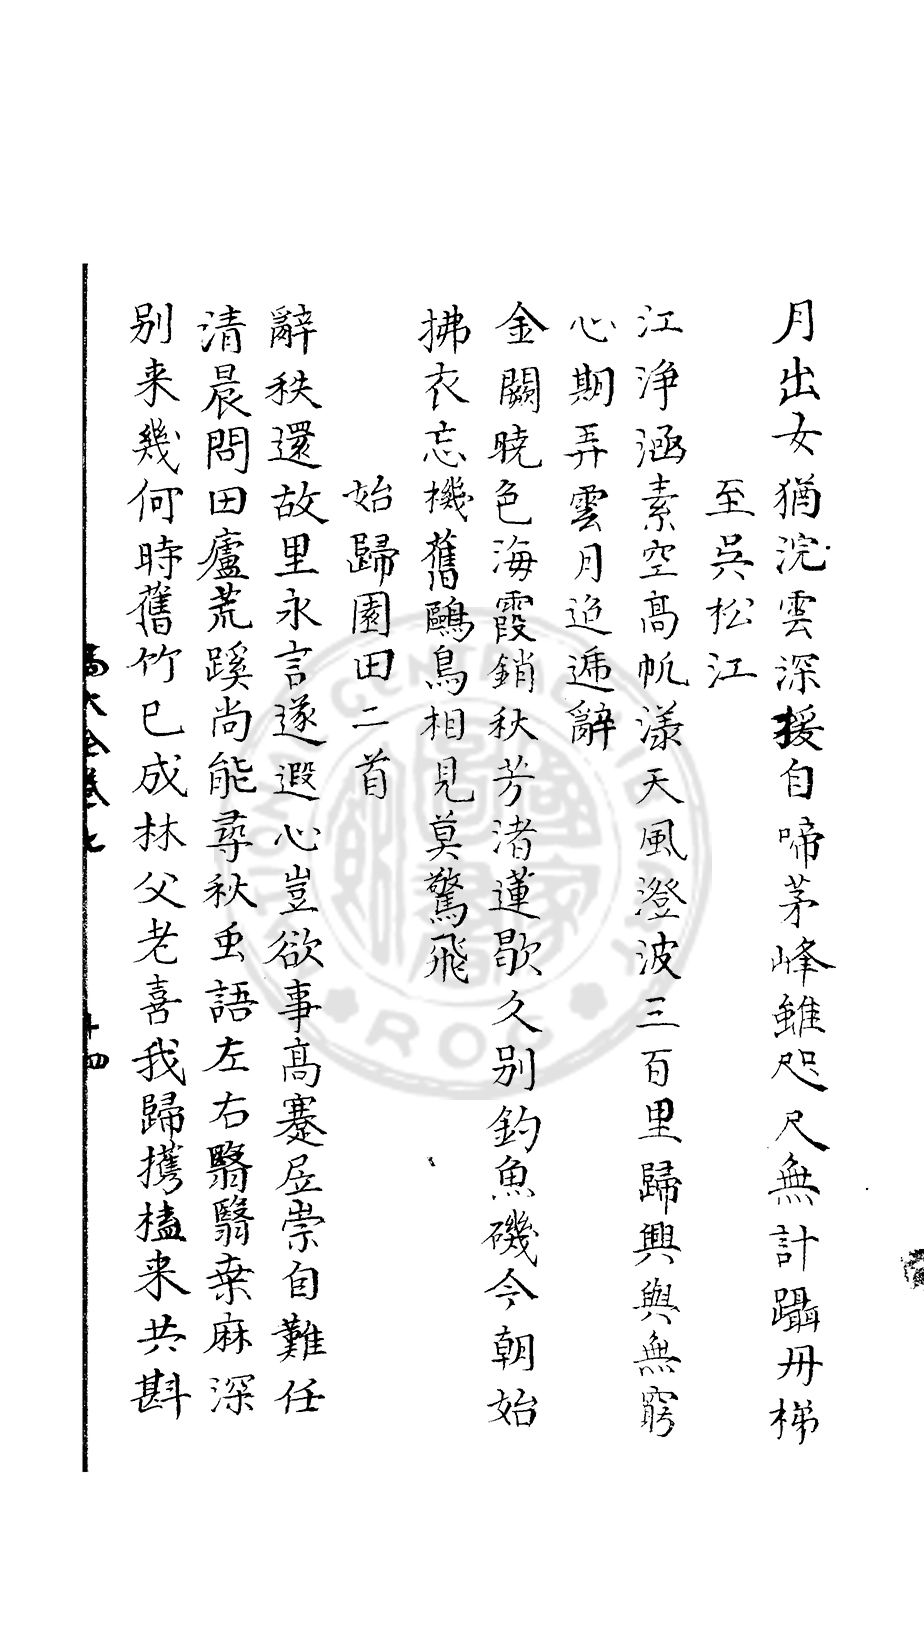 月出女猶浣雲深援自啼茅峰雖咫尺無計躡丹梯
至吳松江
江浄涵素空高帆漾天風澄波三百里歸興與無窮
心期弄雲月迨遞辭
金闕曉色海霞銷秋芳渚蓮歇久别釣魚磯今朝始
拂衣忘機舊鷗鳥相見莫驚飛
始歸園田二首
辭秩還故里永言遂遐心豈欲事高蹇居崇自難任
清晨問田廬荒蹊尚能尋秋虫語左右翳翳桒麻深
别来幾何時舊竹已成林父老喜我歸攜榼来共斟
髙大全卷七
十四
NATIONAL CENTRAL LIBRARY
ROC
國家圖書館